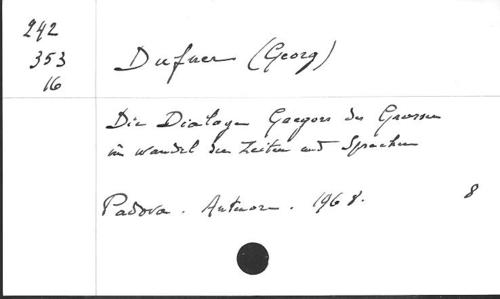 242
353
16
Dufner (Georg)
Die Dialoge Gregors des Grossen
im wandel der Zeiten und Sprachen
Padova. Antenore. 1968. 8